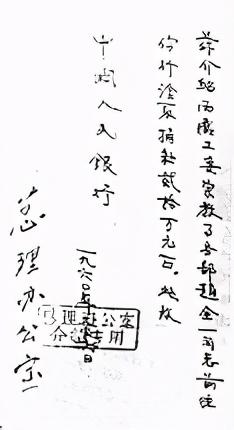 兹介绍西藏工委宗教事务部赵全一同志前往
你行 取捐款贰拾万元正。此致
中国人民银行
一九六〇年 日
总理办公室
总理办公室
介 用